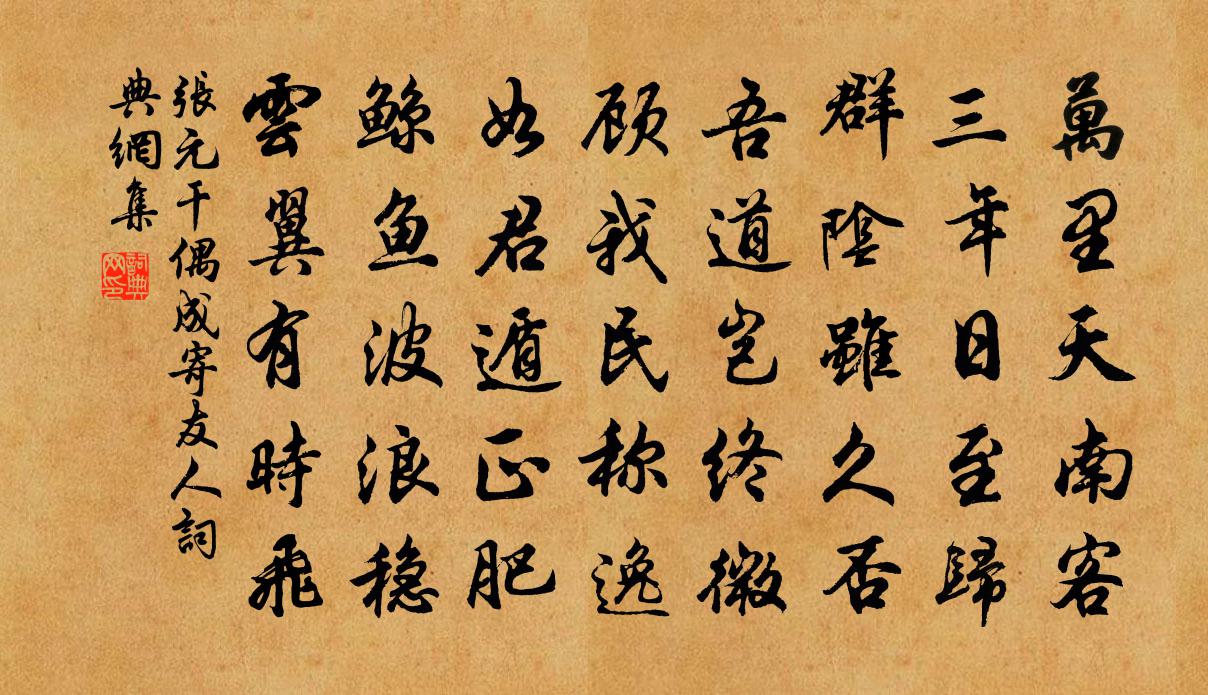 萬里天南客
三年日至歸
群陰雖久否
吾道豈終微
顾我民称逸
如君遁正肥
鲸鱼波浪稳
雲翼有時飛
張元干偶成寄友人詞
典網集
詞典网印